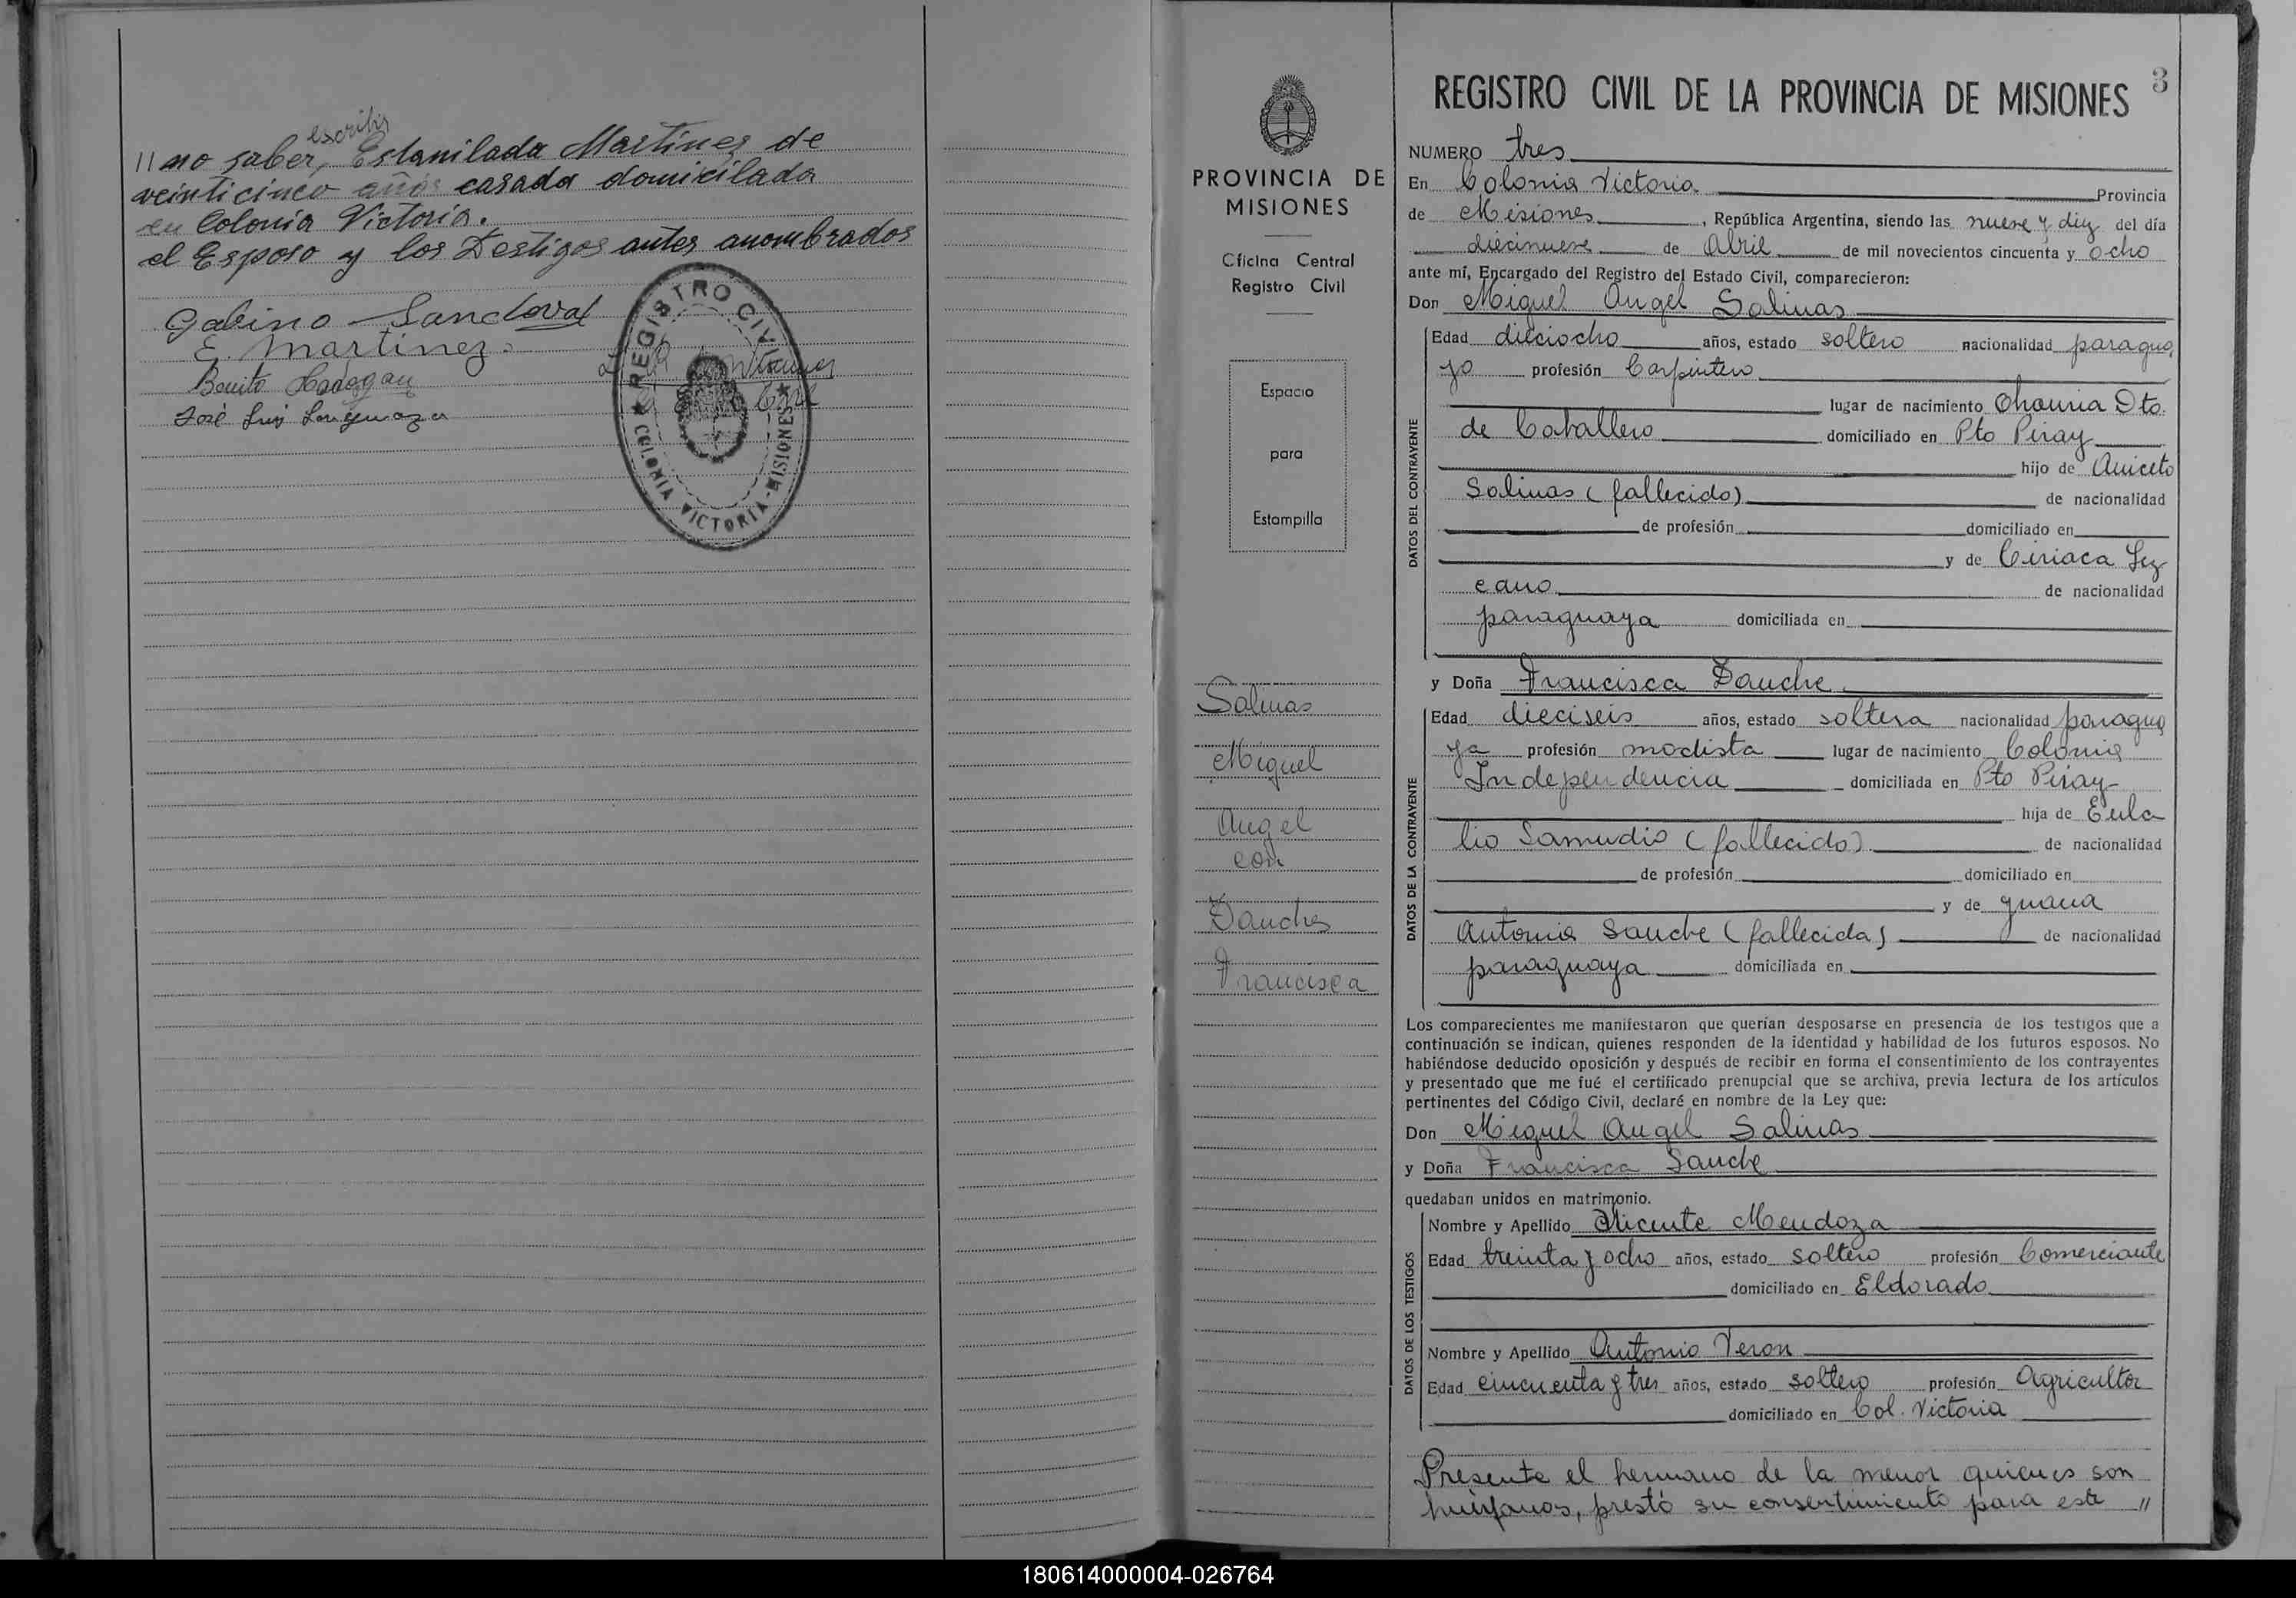 escribir
// no saber, Estanilada Martines de
veinticinco años casada domicilada
en Colonia Victoria.
el Esposo y los Testigos antes anombrados
Gabino Sandoval
E. Martinez
Benito
José Luis
REGISTRO CIVIL
COLONIA VICTORIA - MISIONES
PROVINCIA DE
MISIONES
Oficina Central
Registro Civil
Espacio
para
Estampilla
Salinas
Miguel
Angel
con
Sanches
Francisca
3
REGISTRO CIVIL DE LA PROVINCIA DE MISIONES
NUMERO tres
En Colonia Victoria Provincia
de Misiones, República Argentina, siendo las nueve y diez del día
diecinueve de Abril de mil novecientos cincuenta y ocho
ante mí, Encargado del Registro del Estado Civil, comparecieron:
Don Miguel Angel Salinas
DATOS DEL CONTRAYENTE
Edad dieciocho años, estado soltero nacionalidad paragua
yo profesión Carpintero
lugar de nacimiento Dto.
de Caballero domiciliado en Pto Piray
hijo de Aniceto
Salinas (fallecido) de nacionalidad
de profesión domiciliado en
y de Ciriaca Lez
cano de nacionalidad
paraguaya domiciliada en
y Doña Francisca Sanche
DATOS DE LA CONTRAYENTE
Edad dieciseis años, estado soltera nacionalidad paragua
ya profesión modista lugar de nacimiento Colonia
Independencia domiciliada en Pto Piray
hija de Eula
lio Samudio (fallecido) de nacionalidad
de profesión domiciliado en
y de Juana
Antonia Sanche (fallecida) de nacionalidad
paraguaya domiciliada en
Los comparecientes me manifestaron que querían desposarse en presencia de los testigos que a
continuación se indican, quienes responden de la identidad y habilidad de los futuros esposos. No
habiéndose deducido oposición y después de recibir en forma el consentimiento de los contrayentes
y presentado que me fué el certificado prenupcial que se archiva, previa lectura de los artículos
pertinentes del Código Civil, declaré en nombre de la Ley que:
Don Miguel Angel Salinas
y Doña Francisca Sanche
quedaban unidos en matrimonio.
DATOS DE LOS TESTIGOS
Nombre y Apellido Vicente Mendoza
Edad treinta y ocho años, estado soltero profesión Comerciante
domiciliado en Eldorado
Nombre y Apellido Antonio Veron
Edad cincuenta y tres años, estado soltero profesión Agricultor
domiciliado en Col. Victoria
Presente el hermano de la menor quienes son
huérfanos, prestó su consentimiento para este //
180614000004-026764